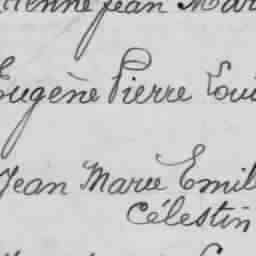 Jean Mar
Eugène Pierre Loui
Jean Marie Emil
Célestin